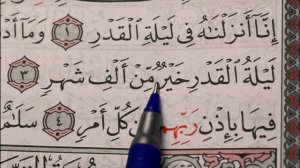 إِنَّا أَنزَلْنَٰهُ فِى لَيْلَةِ ٱلْقَدْرِ ١ وَمَا أَدْ
لَيْلَةُ ٱلْقَدْرِ خَيْرٌ مِّنْ أَلْفِ شَهْرٍ ٣
فِيهَا بِإِذْنِ رَبِّهِم مِّن كُلِّ أَمْرٍ ٤ سَلَٰمٌ